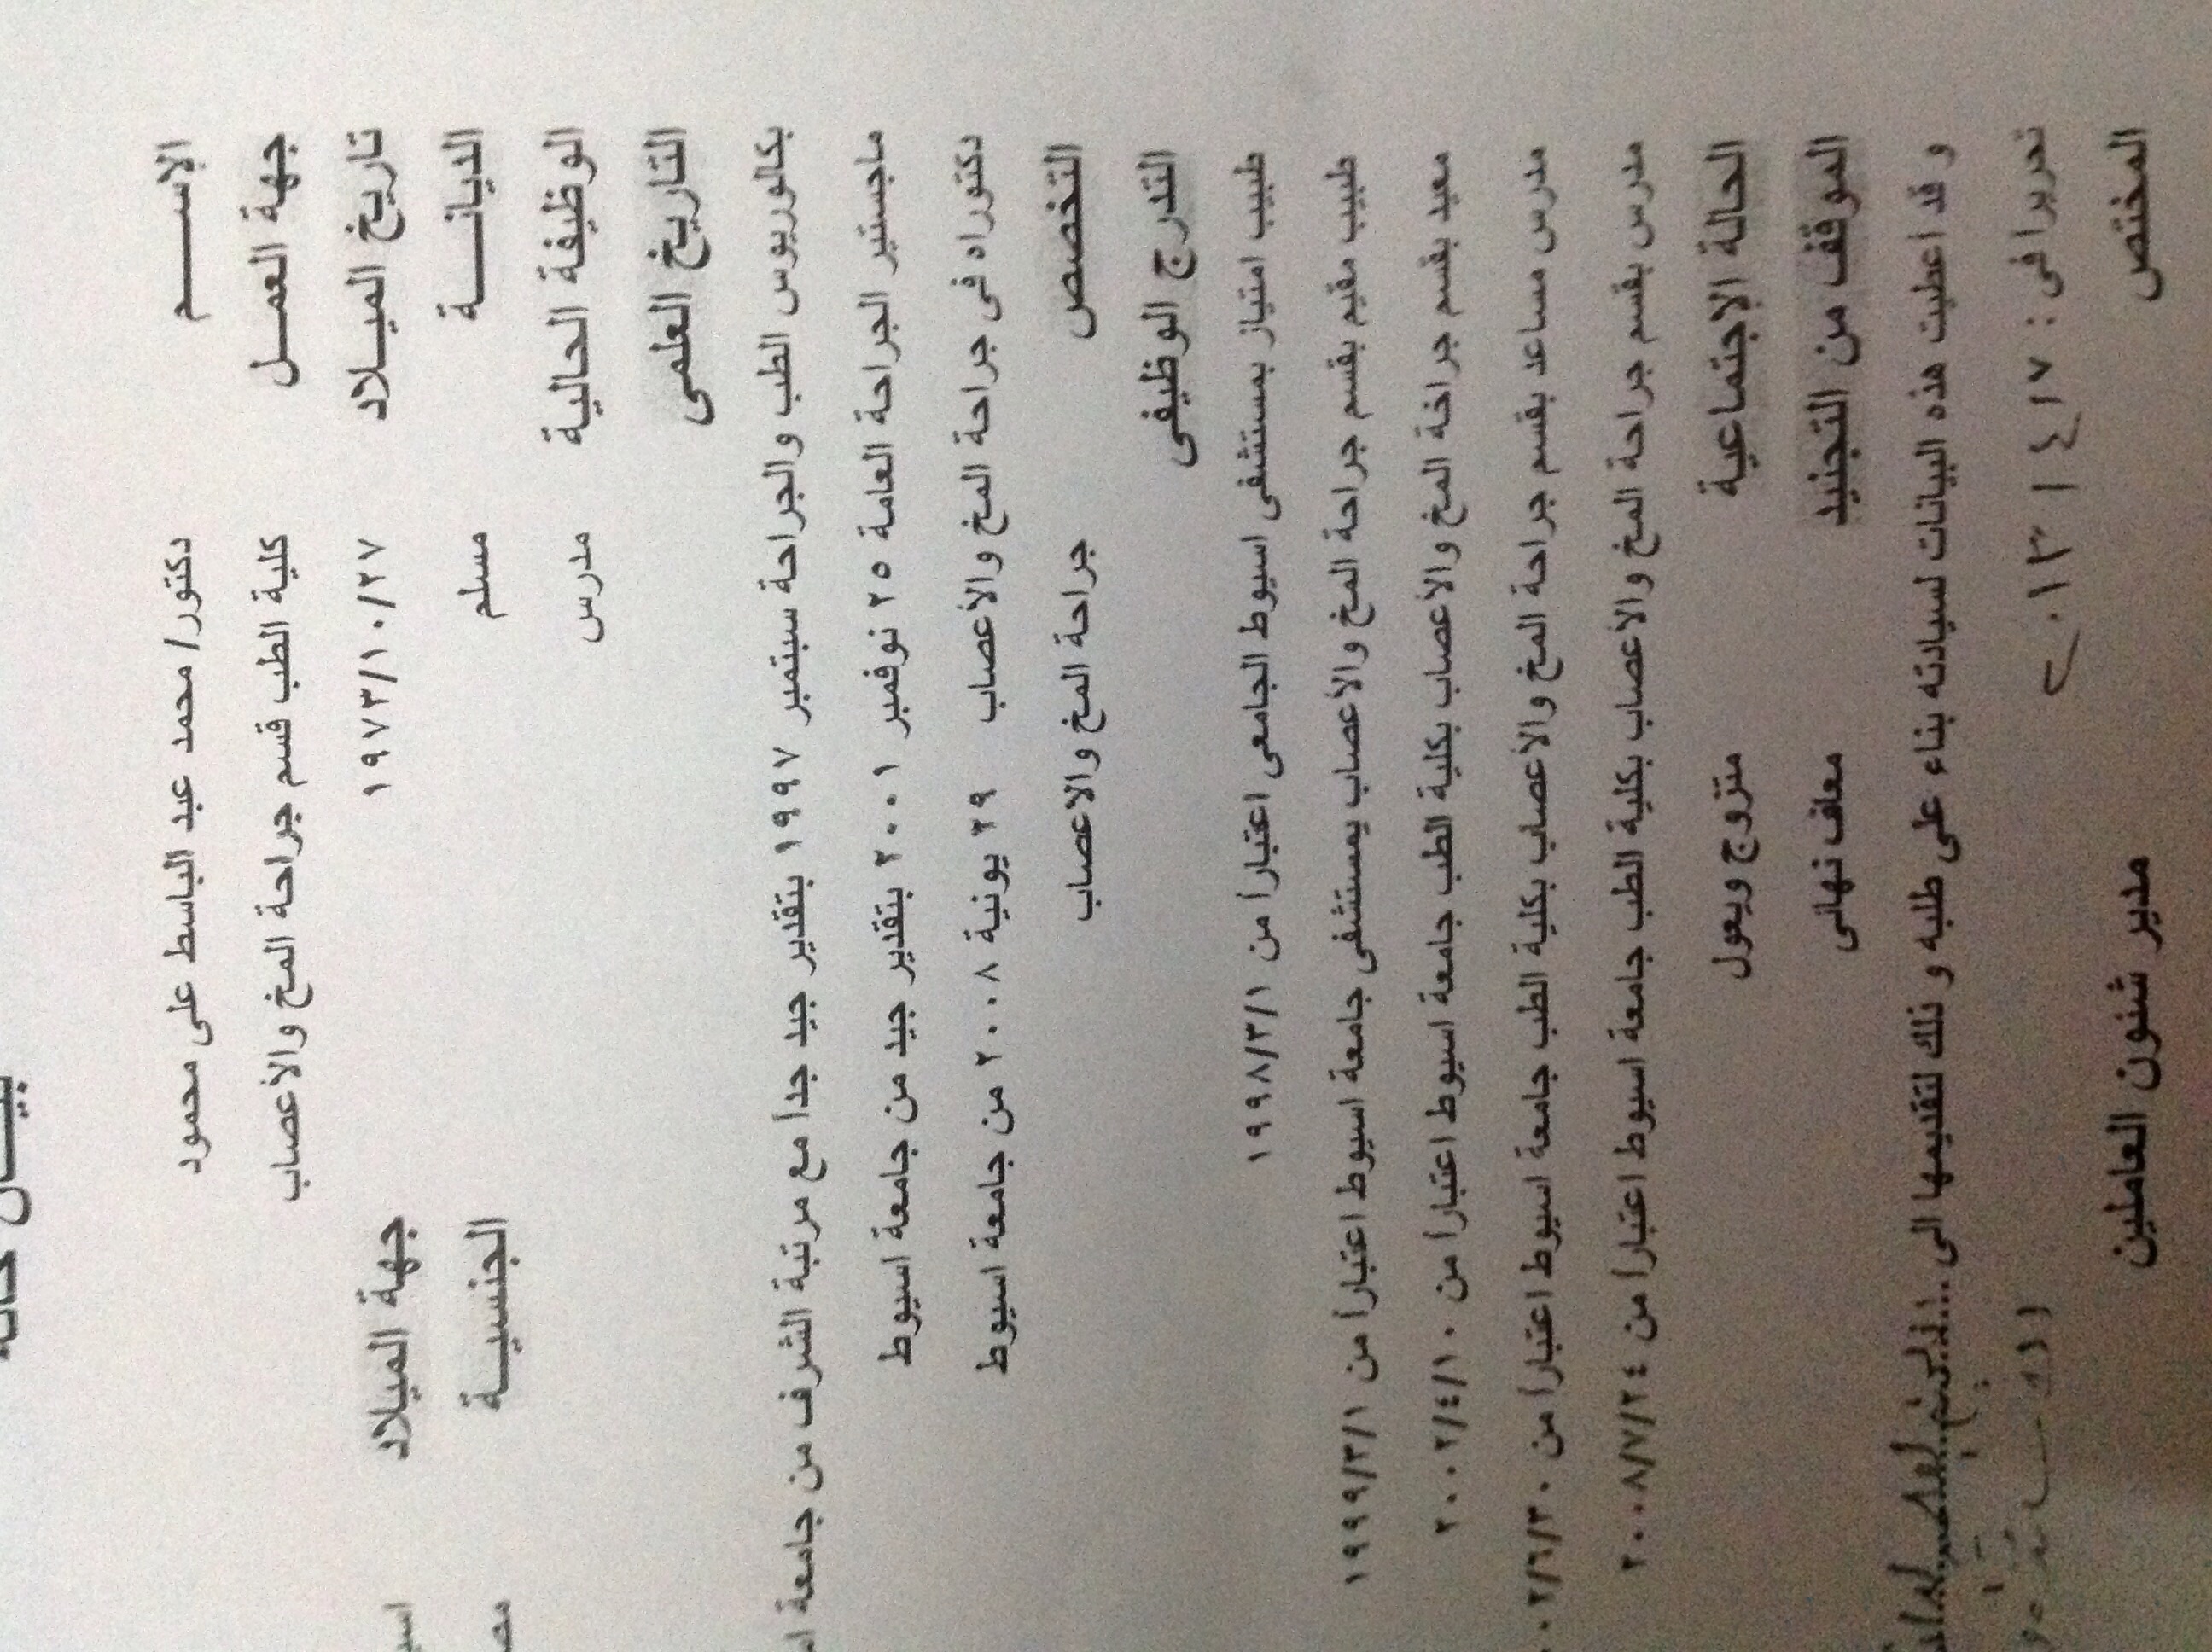 بيـــان حالة
الإســـــم دكتور/ محمد عبد الباسط على محمود
جهة العمـــل كلية الطب قسم جراحة المخ والأعصاب
تاريخ الميـــلاد ١٩٧٣/١٠/٢٧ جهة الميلاد
الديانـــــة مسلم الجنسيـــة
الوظيفة الحالية مدرس
التاريخ العلمى
بكالوريوس الطب والجراحة سبتمبر ١٩٩٧ بتقدير جيد جدا مع مرتبة الشرف من جامعة
ماجستير الجراحة العامة ٢٥ نوفمبر ٢٠٠١ بتقدير جيد من جامعة اسيوط
دكتوراه فى جراحة المخ والأعصاب ٢٩ يونية ٢٠٠٨ من جامعة اسيوط
التخصص جراحة المخ والاعصاب
التدرج الوظيفى
طبيب امتياز بمستشفى اسيوط الجامعى اعتبارا من ١٩٩٨/٣/١
طبيب مقيم بقسم جراحة المخ والأعصاب بمستشفى جامعة اسيوط اعتبارا من ١٩٩٩/٣/١
معيد بقسم جراخة المخ والأعصاب بكلية الطب جامعة اسيوط اعتبارا من ٢٠٠٢/٤/١٠
مدرس مساعد بقسم جراحة المخ والأعصاب بكلية الطب جامعة اسيوط اعتبارا من
مدرس بقسم جراحة المخ والأعصاب بكلية الطب جامعة اسيوط اعتبارا من ٢٠٠٨/٧/٢٤
الحالة الإجتماعية متزوج ويعول
الموقف من التجنيد معاف نهائى
و قد اعطيت هذه البيانات لسيادته بناء على طلبه و ذلك لتقديمها الى
تحريرا فى : ١٧ / ٤ / ٢٠١٣
المختص مدير شئون العاملين